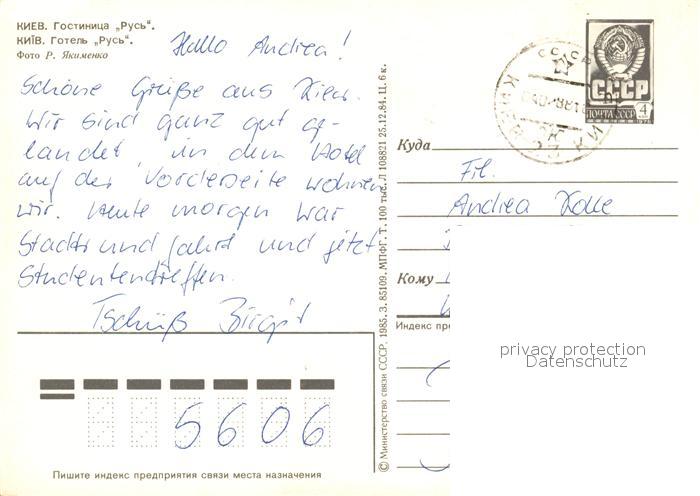 КИЕВ. Гостиница „Русь“.
КИЇВ. Готель „Русь“.
Фото Р. Якименко
Hallo Andrea!
Schöne Grüße aus Kiew.
Wir sind ganz gut ge-
landet, in dem Hotel
auf der Vorderseite wohnen
wir. Heute morgen war
Stadtrundfahrt und jetzt
Studententreffen.
Tschüß Birgit
5606
Пишите индекс предприятия связи места назначения
© Министерство связи СССР, 1985. З. 85109. МПФГ. Т. 100 тыс. Л 108821 25.12.84. Ц. 6 к.
СССР
ПОЧТА СССР 4
1976
Куда
Frl.
Andrea Kolle
Кому
Индекс пре
privacy protection
Datenschutz